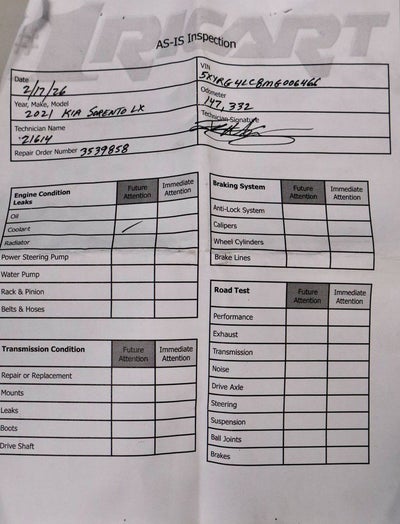 #1 RICART
AS-IS Inspection
Date
2/17/26
VIN
5XYRG4LC8MG006466
Year, Make, Model
2021 KIA SORENTO LX
Odometer
147,332
Technician Name
21614
Technician Signature
Repair Order Number 3539858
Engine Condition Future Attention Immediate Attention
Leaks
Oil
Coolant
Radiator
Power Steering Pump
Water Pump
Rack & Pinion
Belts & Hoses
Transmission Condition Future Attention Immediate Attention
Repair or Replacement
Mounts
Leaks
Boots
Drive Shaft
Braking System Future Attention Immediate Attention
Anti-Lock System
Calipers
Wheel Cylinders
Brake Lines
Road Test Future Attention Immediate Attention
Performance
Exhaust
Transmission
Noise
Drive Axle
Steering
Suspension
Ball Joints
Brakes